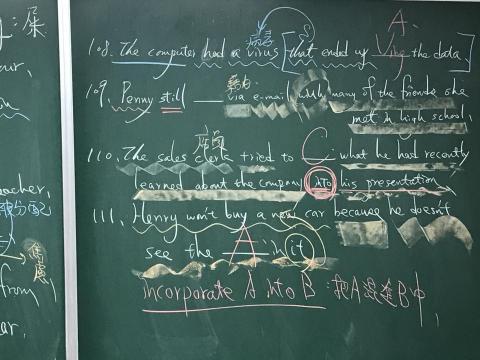 : 屎
A.
病毒 S
108. The computer had a virus [that ended up Ving the data.]
109. Penny still ___ via e-mail with many of the friends she
met in high school.
店員
110. The sales clerk tried to C what he had recently
learned about the company into his presentation
111. Henry won't buy a new car because he doesn't
see the A in it
incorporate A into B : 把A混進B中,
acher,
被分配
from
ar,